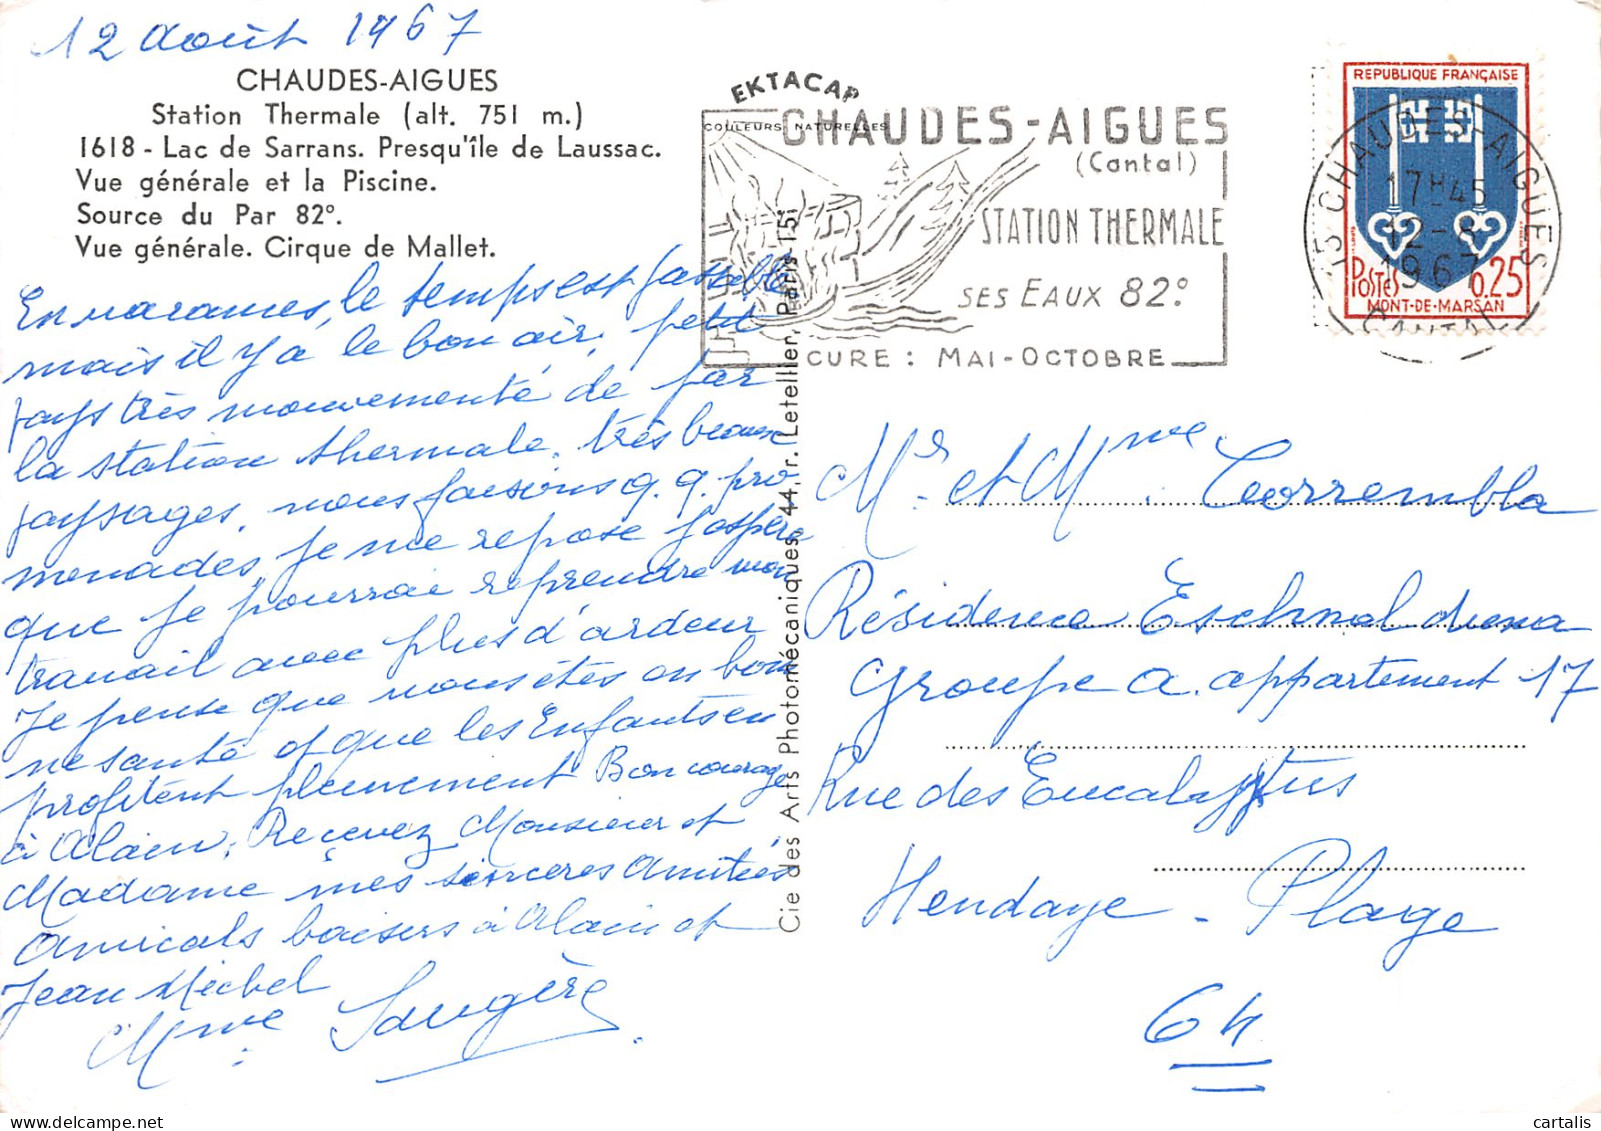 12 août 1967
CHAUDES-AIGUES
Station Thermale (alt. 751 m.)
1618 - Lac de Sarrans. Presqu'île de Laussac.
Vue générale et la Piscine.
Source du Par 82º.
Vue générale. Cirque de Mallet.
En vacances, le temps est passable
mais il y a le bon air, petit
pays très mouvementé de par
la station thermale, très beaux
paysages, nous faisons q.q. pro
menades, je me repose j'espère
que je pourrai reprendre mon
travail avec plus d'ardeur
Je pense que vous êtes en bon
ne santé et que les Enfants en
profitent pleinement Bon courage
à Alain, Recevez Monsieur et
Madame mes sincères Amitiés
Amicals baisers à Alain et
Jean Michel
Mme Saugère
EKTACAP
COULEURS NATURELLES
CHAUDES-AIGUES
(Cantal)
STATION THERMALE
SES EAUX 82º
CURE : MAI-OCTOBRE
Cie des Arts Photomécaniques, 44, r. Letellier, Paris-15e
REPUBLIQUE FRANÇAISE
POSTES 0,25
MONT-DE-MARSAN
15 CHAUDES-AIGUES
17H45
12-8
1967
CANTAL
Mr. et Mme. Correrembla
Résidence Eschnaldema
Groupe A. appartement 17
Rue des Eucalyptus
Hendaye - Plage
64
cartalis